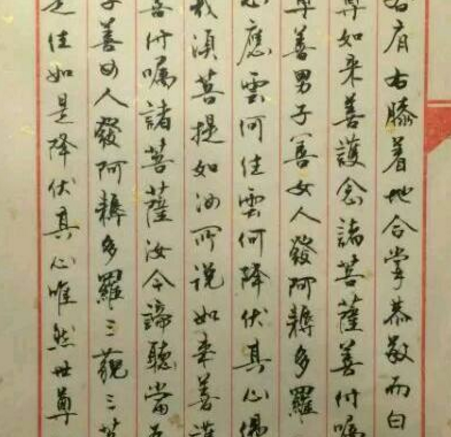 右肩右膝着地合掌恭敬而白
尊如来善護念諸菩薩善付嘱
尊善男子善女人發阿耨多羅
心應雲何住雲何降伏其心佛
哉須菩提如汝所说如来善護
善付嘱諸菩薩汝今諦聽當为
子善女人發阿耨多羅三藐三菩
是住如是降伏其心唯然世尊